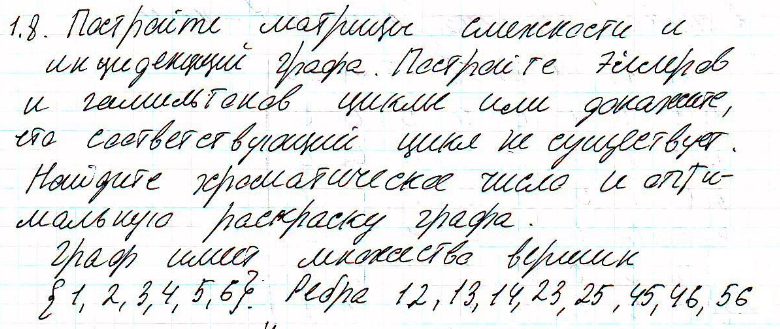 1.8. Постройте матрицы смежности и
инциденций графа. Постройте Эйлеров
и гамильтонов циклы или докажите,
что соответствующий цикл не существует.
Найдите хроматическое число и опти-
мальную раскраску графа.
Граф имеет множество вершин
{1, 2, 3, 4, 5, 6}. Ребра 12, 13, 14, 23, 25, 45, 46, 56